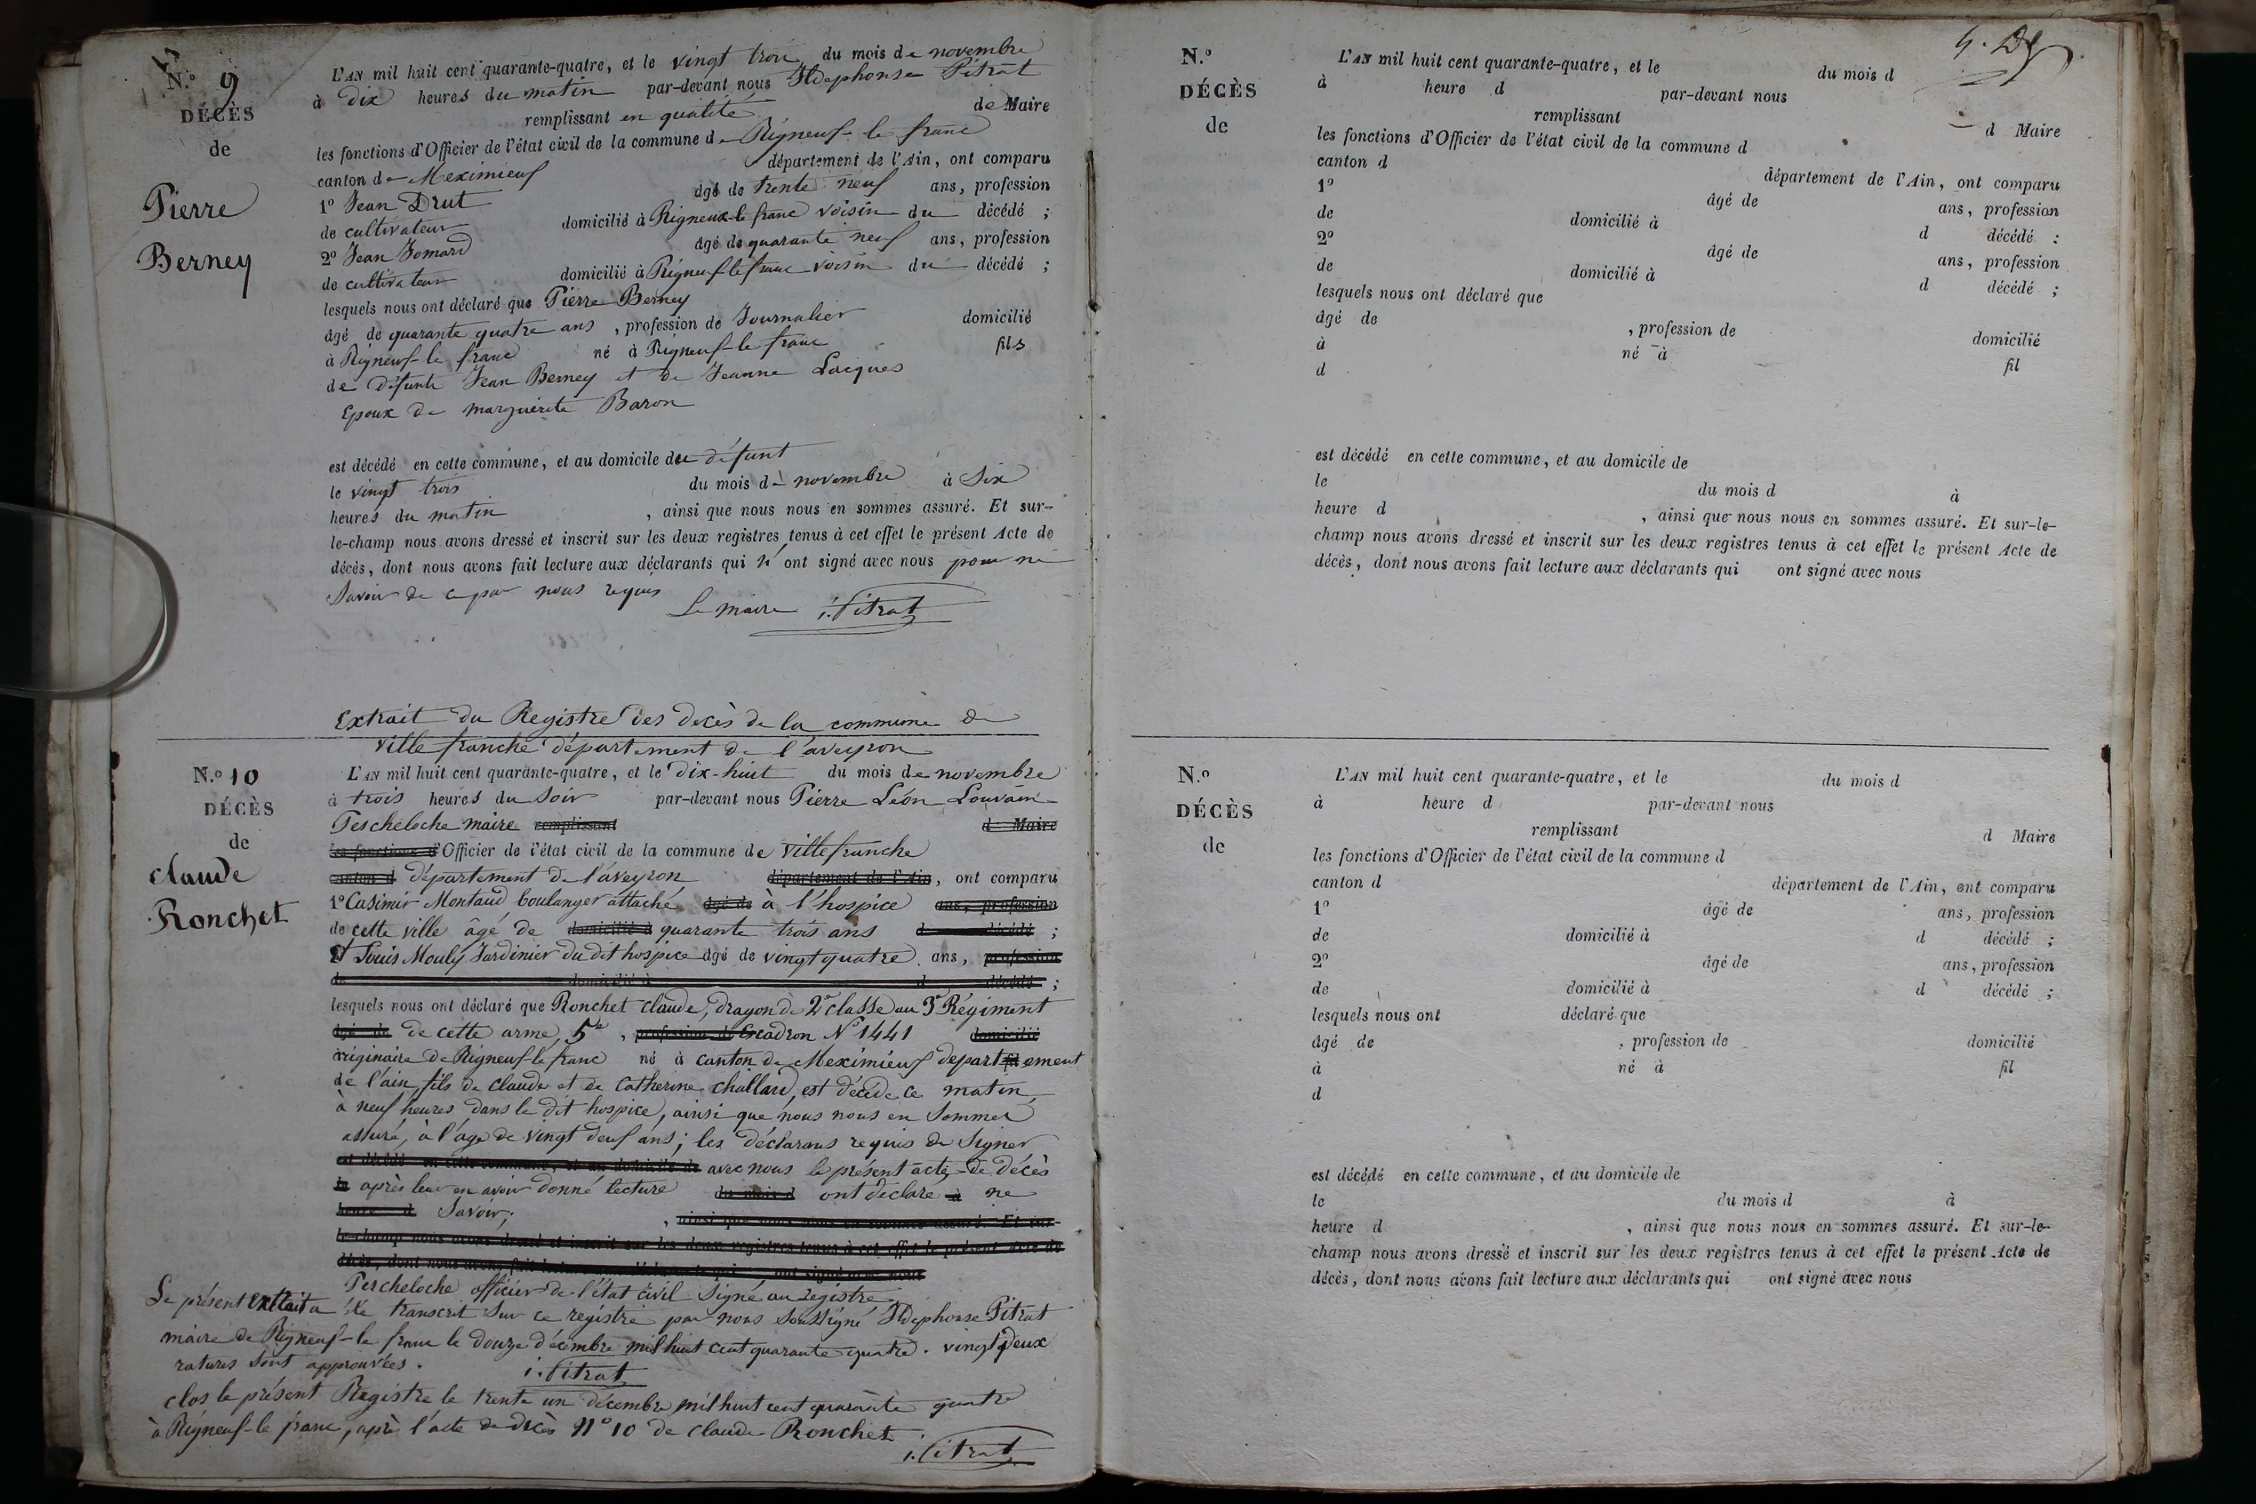 N.º 9
DÉCÈS
de
Pierre
Berney
L'AN mil huit cent quarante-quatre, et le vingt trois du mois de novembre
à dix heures du matin par-devant nous Ildephonse Pitrat
remplissant en qualité de Maire
les fonctions d'Officier de l'état civil de la commune de Rigneux-le franc
canton de Meximieux département de l'Ain, ont comparu
1º Jean Drut âgé de trente neuf ans, profession
de cultivateur domicilié à Rigneux-le franc voisin du décédé ;
2º Jean Jomard âgé de quarante neuf ans, profession
de cultivateur domicilié à Rigneux le franc voisin du décédé ;
lesquels nous ont déclaré que Pierre Berney
âgé de quarante quatre ans, profession de Journalier domicilié
à Rigneux-le franc né à Rigneux-le franc fils
de défunts Jean Berney et de Jeanne Lacques
Epoux de marguerite Baron
est décédé en cette commune, et au domicile du défunt
le vingt trois du mois de novembre à Six
heures du matin, ainsi que nous nous en sommes assuré. Et sur-
le-champ nous avons dressé et inscrit sur les deux registres tenus à cet effet le présent Acte de
décès, dont nous avons fait lecture aux déclarants qui n'ont signé avec nous pour ne
Savoir de ce par nous requis
Le maire i. Pitrat
Extrait du Registre des décès de la commune de
Villefranche département de l'aveyron
N.º 10
DÉCÈS
de
claude
Ronchet
L'AN mil huit cent quarante-quatre, et le dix-huit du mois de novembre
à trois heures du soir par-devant nous Pierre Léon Louvain
Pescheloche maire remplissant d Maire
les fonctions d'Officier de l'état civil de la commune de villefranche
canton d département de l'aveyron département de l'Ain, ont comparu
1º Casimir Montaud boulanger attaché âgé de à l'hospice ans, profession
de cette ville âgé de domicilié à quarante trois ans d décédé ;
et Louis Mouly Jardinier du dit hospice âgé de vingt quatre ans, profession
de domicilié à d décédé ;
lesquels nous ont déclaré que Ronchet claude, dragon de 2e classe au 3e Régiment
âgé de de cette arme, 5e, profession de Escadron Nº 1441 domicilié
originaire de Rigneux-le franc né à canton de Meximieux département
de l'ain, fils de claude et de Catherine challard, est décédé ce matin
à neuf heures dans le dit hospice, ainsi que nous nous en Sommes
assuré, à l'âge de vingt deux ans ; les déclarans requis de Signer
est décédé en cette commune, et au domicile de avec nous le présent acte de décès
le après leur en avoir donné lecture du mois d ont déclaré à ne
heure d Savoir ;, ainsi que nous nous en sommes assuré. Et sur-
le-champ nous avons dressé et inscrit sur les deux registres tenus à cet effet le présent Acte de
décès, dont nous avons fait lecture aux déclarants qui ont signé avec nous
Pescheloche officier de l'état civil Signé au registre
Le présent Extrait a été transcrit Sur ce registre par nous Soussigné Ildephonse Pitrat
maire de Rigneux-le franc le douze décembre mil huit cent quarante quatre. vingt deux
ratures sont approuvées.
i. Pitrat
clos le présent Registre le trente un décembre mil huit cent quarante quatre
à Rigneux-le franc, après l'acte de décès Nº 10 de claude Ronchet
i. Pitrat
N.º
DÉCÈS
de
L'AN mil huit cent quarante-quatre, et le du mois d
à heure d par-devant nous
remplissant d Maire
les fonctions d'Officier de l'état civil de la commune d
canton d département de l'Ain, ont comparu
1º âgé de ans, profession
de domicilié à d décédé ;
2º âgé de ans, profession
de domicilié à d décédé ;
lesquels nous ont déclaré que
âgé de, profession de domicilié
à né à fil
d
est décédé en cette commune, et au domicile de
le du mois d à
heure d, ainsi que nous nous en sommes assuré. Et sur-le-
champ nous avons dressé et inscrit sur les deux registres tenus à cet effet le présent Acte de
décès, dont nous avons fait lecture aux déclarants qui ont signé avec nous
N.º
DÉCÈS
de
L'AN mil huit cent quarante-quatre, et le du mois d
à heure d par-devant nous
remplissant d Maire
les fonctions d'Officier de l'état civil de la commune d
canton d département de l'Ain, ont comparu
1º âgé de ans, profession
de domicilié à d décédé ;
2º âgé de ans, profession
de domicilié à d décédé ;
lesquels nous ont déclaré que
âgé de, profession de domicilié
à né à fil
d
est décédé en cette commune, et au domicile de
le du mois d à
heure d, ainsi que nous nous en sommes assuré. Et sur-le-
champ nous avons dressé et inscrit sur les deux registres tenus à cet effet le présent Acte de
décès, dont nous avons fait lecture aux déclarants qui ont signé avec nous